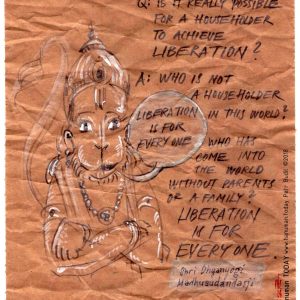 Q: IS IT REALLY POSSIBLE
FOR A HOUSEHOLDER
TO ACHIEVE
LIBERATION?
A: WHO IS NOT
A HOUSEHOLDER
IN THIS WORLD?
LIBERATION
IS FOR
EVERYONE
WHO HAS
COME INTO
THE WORLD
WITHOUT PARENTS
OR A FAMILY?
LIBERATION
IS FOR
EVERYONE.
Shri Dhyanyogi
Madhusudandasji
HANUMAN TODAY www.hanuman.today Petr Budil ©2018